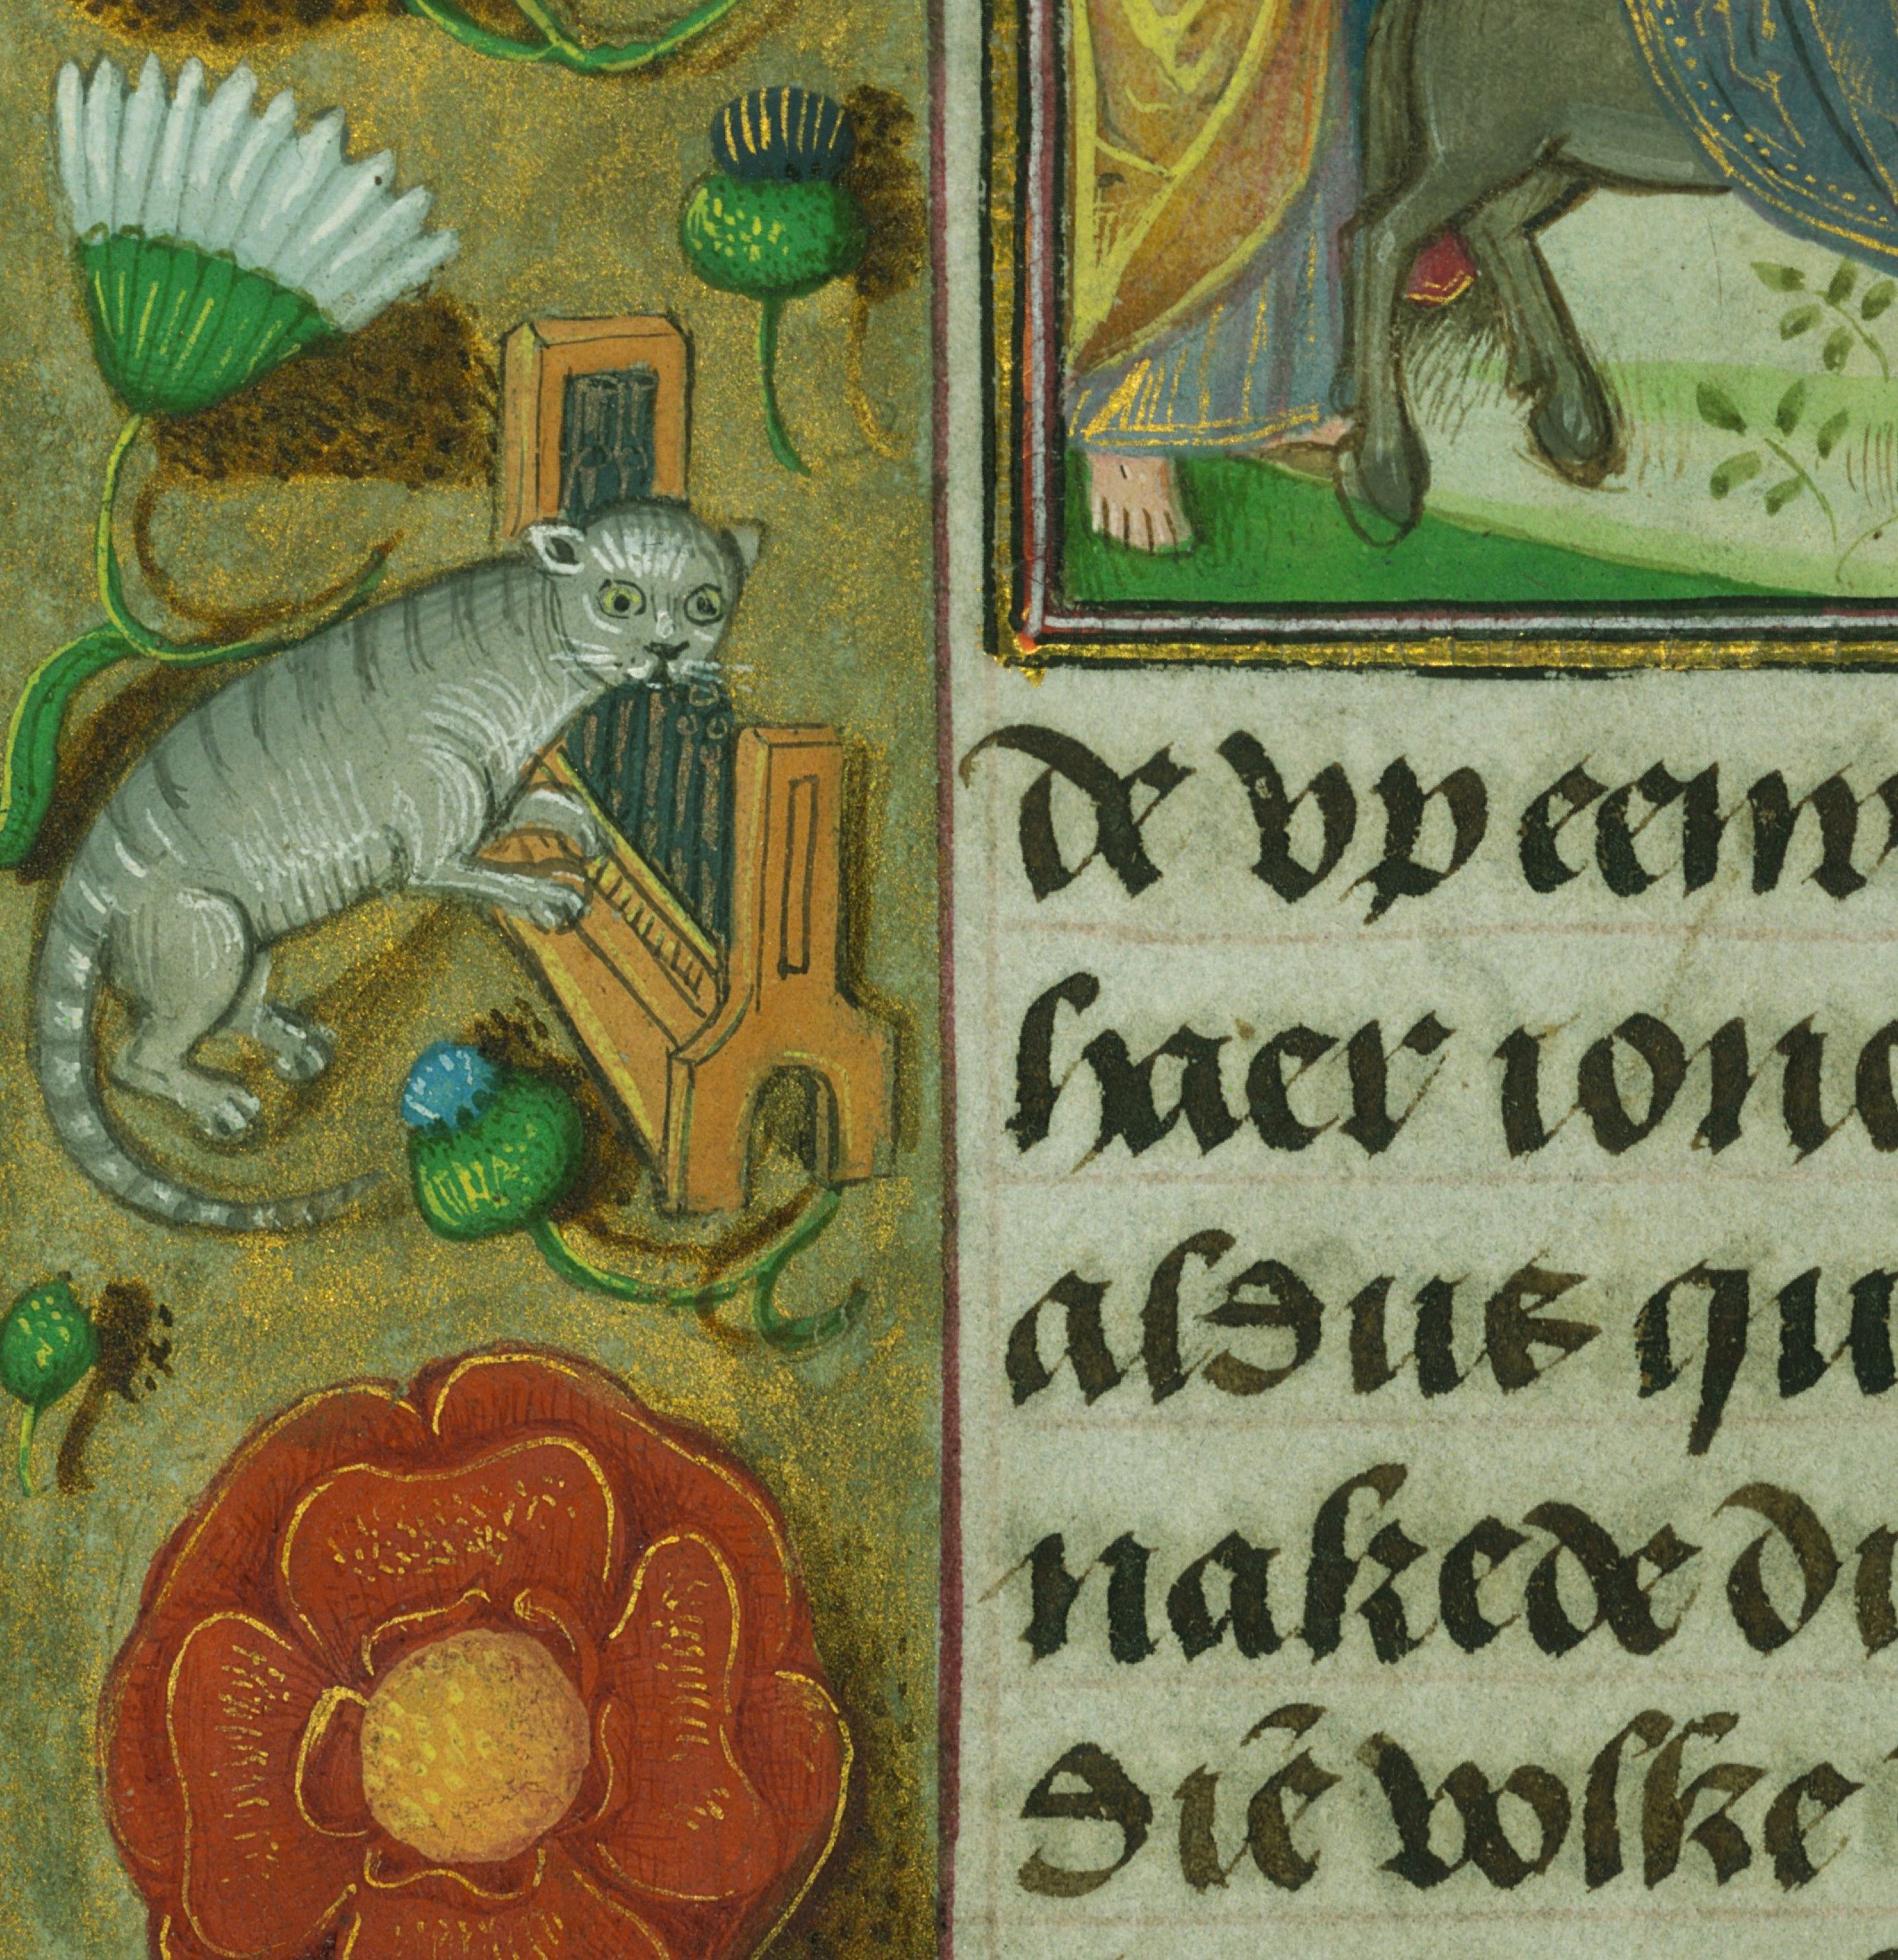 de vp een
haer ionc
aldus qu
nakede di
Diē wolke